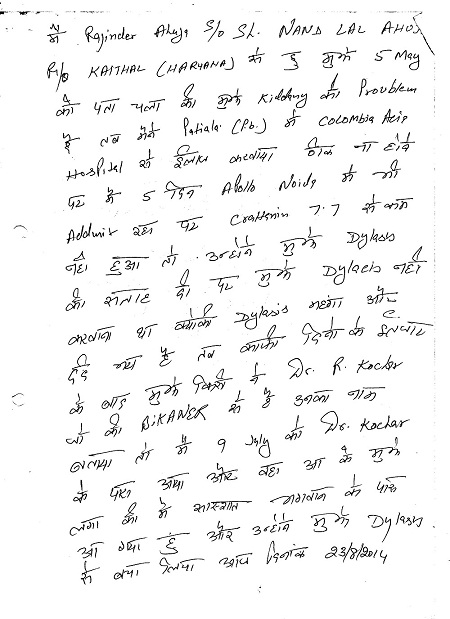 मैं Rajinder Ahuja S/o Sh. NAND LAL AHUJ
R/o KAITHAL (HARYANA) से हु मुझे 5 May
को पता चला की मुझे Kiddany की Proublem
है तब मैंने Patiala (Pb.) में Colombia Acis
Hospital से ईलाज करवाया ठीक ना होने
पर मैं 5 दिन Apollo Noida में भी
Addmit रहा पर Crattenin 7.7 से कम
नही हुआ तो उन्होने मुझे Dylasis
की सलाह दी पर मुझे Dylacis नही
करवाना था क्योकी Dylasis महंगा और
है तब काफी दिनो के
के बाद मुझे किसी ने Dr. R. Kochar
जो की BIKANER से है उनका नाम
बताया तो मैं 9 July को Dr. Kochar
के पास आया और यहा आ के मुझे
लगा की मैं साक्षात भगवान के पास
आ गया हुं और उन्होने मुझे Dylasis
से बचा लिया आज दिनांक 23/8/2014